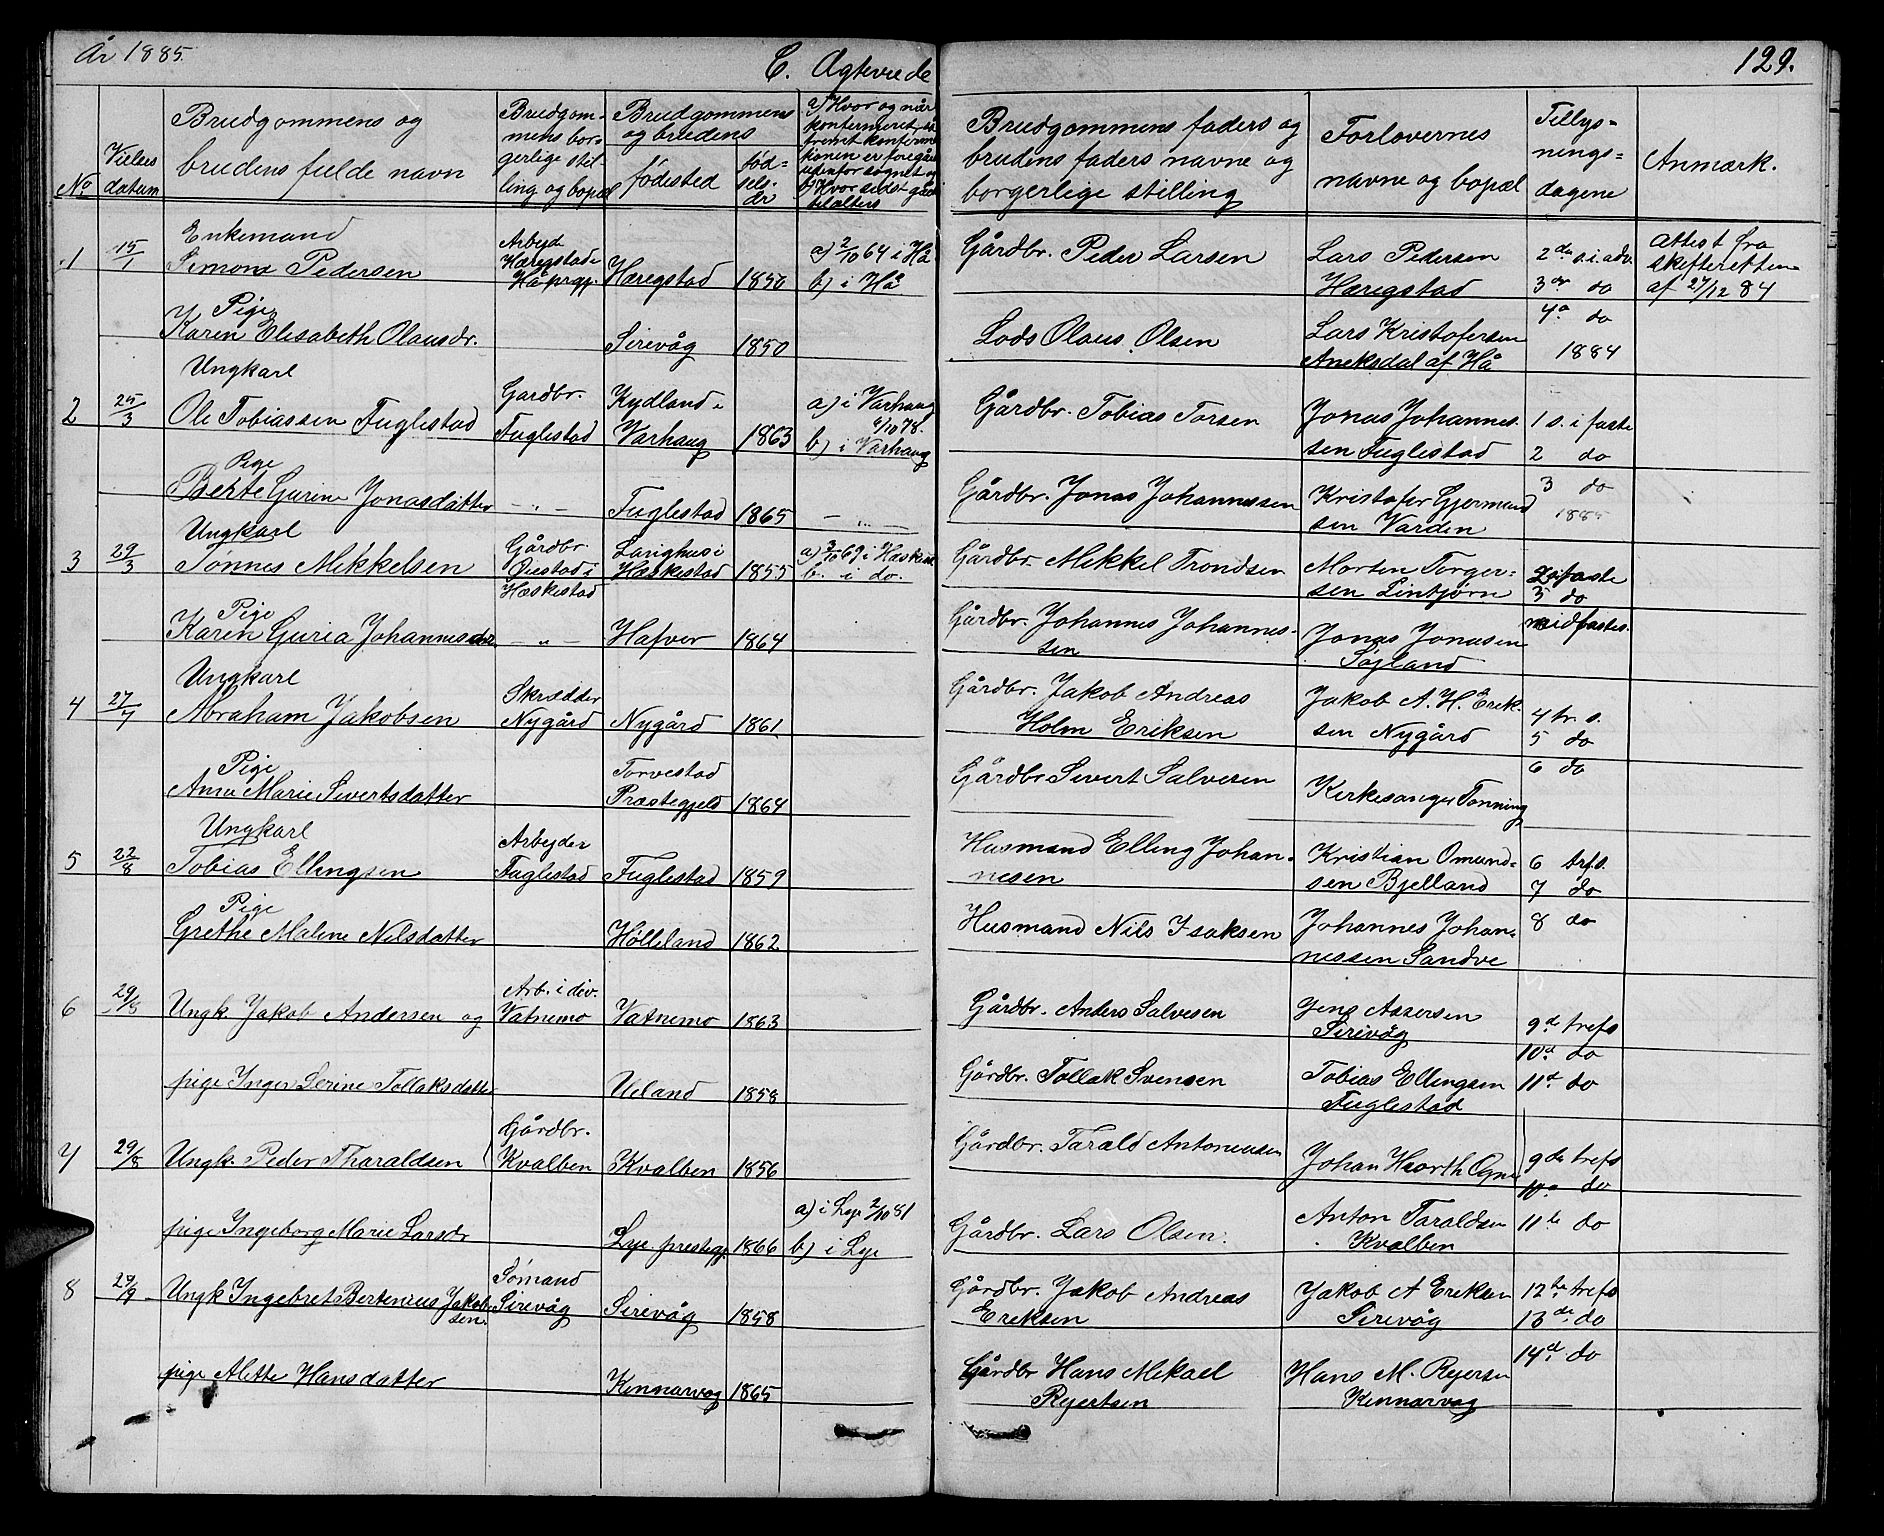 År 1885.
C. Ægteviede
129.
No
Vielses datum
Brudgommens og brudens fulde navn
Brudgommens borgerlige stilling og bopæl
Brudgommens og brudens
fødested
fødselsår
a) Hvor og når konfirmeret, så fremt konfirmationen er foregået udenfor sognet og b) Hvor sidst gået til alters
Brudgommens faders og brudens faders navne og borgerlige stilling
Forlovernes navne og bopæl
Tillysningsdagene
Anmærk.
1 15/1 Enkemand Simon Pedersen
Arbejde Hæigstad i Hå prgj.
Hæigstad 1850
a) 2/10 64 i Hå
b) i Hå
Gårdbr. Peder Larsen
Lars Pedersen Hærigstad
2den s. i. adv.
3die do
4de do
1884
Attest fra skifteretten af 27/12 84
Pige Karen Elisabeth Olausdr.
Sirevåg 1850
Lods Olaus Olsen
Lars Kristofersen Aneksdal af Hå
2 25/3 Ungkarl Ole Tobiassen Fuglestad
Gardbr. Fuglestad
Kydland i Varhaug 1863
a) i Varhaug 6/10 78.
b) i Varhaug
Gårdbr. Tobias Torsen
Jonas Johannessen Fuglestad
1 s. i faste
2 do
3 do
1885
Pige Berte Gurine Jonasdatter
— " —
Fuglestad 1865
— " —
Gårdbr. Jonas Johannessen
Kristofer Gjermundsen Varden
3 29/3 Ungkarl Tønnes Mikkelsen
Gårdbr. Øiestad i Hæskestad
Langhus i Hæskestad 1855
a) 3/10 69 i Hæskest.
b. i do.
Gårdbr. Mikkel Trondsen
Morten Torgersen Linbjørn
2 i faste
3 do
midfastes.
Pige Karen Guria Johannesdr.
— " —
Hafver 1864
Gårdbr. Johannes Johannessen
Jonas Jonasen Søiland
4 27/4 Ungkarl Abraham Jakobsen
Skrædder Nygård
Nygård 1861
Gårdbr. Jakob Andreas Holm Eriksen
Jakob A. H. Eriksen Nygård
4 tr. s.
5 do
6 do
Pige Ana Marie Sivertsdatter
Torvestad Præstegjeld 1864
Gårdbr Sivert Salvesen
Kirkesanger Tønning
5 22/8 Ungkarl Tobias Ellingsen
Arbejder Fuglestad
Fuglestad 1859
Husmand Elling Johannesen
Kristian Omundsen Bjelland
6 trfs.
7 do
8 do
Pige Grethe Malene Nilsdatter
Hølleland 1862
Husmand Nils Isaksen
Johannes Johannessen Sandve
6 29/8 Ungk. Jakob Andersen og
Arb. i div. Vatnemo
Vatnemo 1863
Gårdbr. Anders Salvesen
Jens Assersen Sirevåg
9de trefs
10d do
11d do
pige Inger Serine Tollaksdatter
Ueland 1858
Gårdbr. Tollak Svensen
Tobias Ellingsen Fuglestad
7 29/8 Ungk. Peder Tharaldsen
Gårdbr. Kvalben
Kvalben 1856
Gårdbr. Tarald Antoniusen
Johan Haarth Ogne
9de trefs
10de do
11te do
pige Ingeborg Marie Larsdr
Lye prestegj. 1866
a) i Lye 2/10 81
b) i Lye
Gårdbr. Lars Olsen.
Anton Taraldsen Kvalben
8 29/9 Ungk Ingebret Bertinius Jakobsen.
Sømand Sirevåg
Sirevåg 1858
Gårdbr. Jakob Andreas Eriksen
Jakob A Eriksen Sirevåg
12te trefs
13de do
14d do
pige Alette Hansdatter
Kinnarvag 1865
Gårdbr Hans Mikael Rejertsen
Hans M. Rejersen Kinnarvag